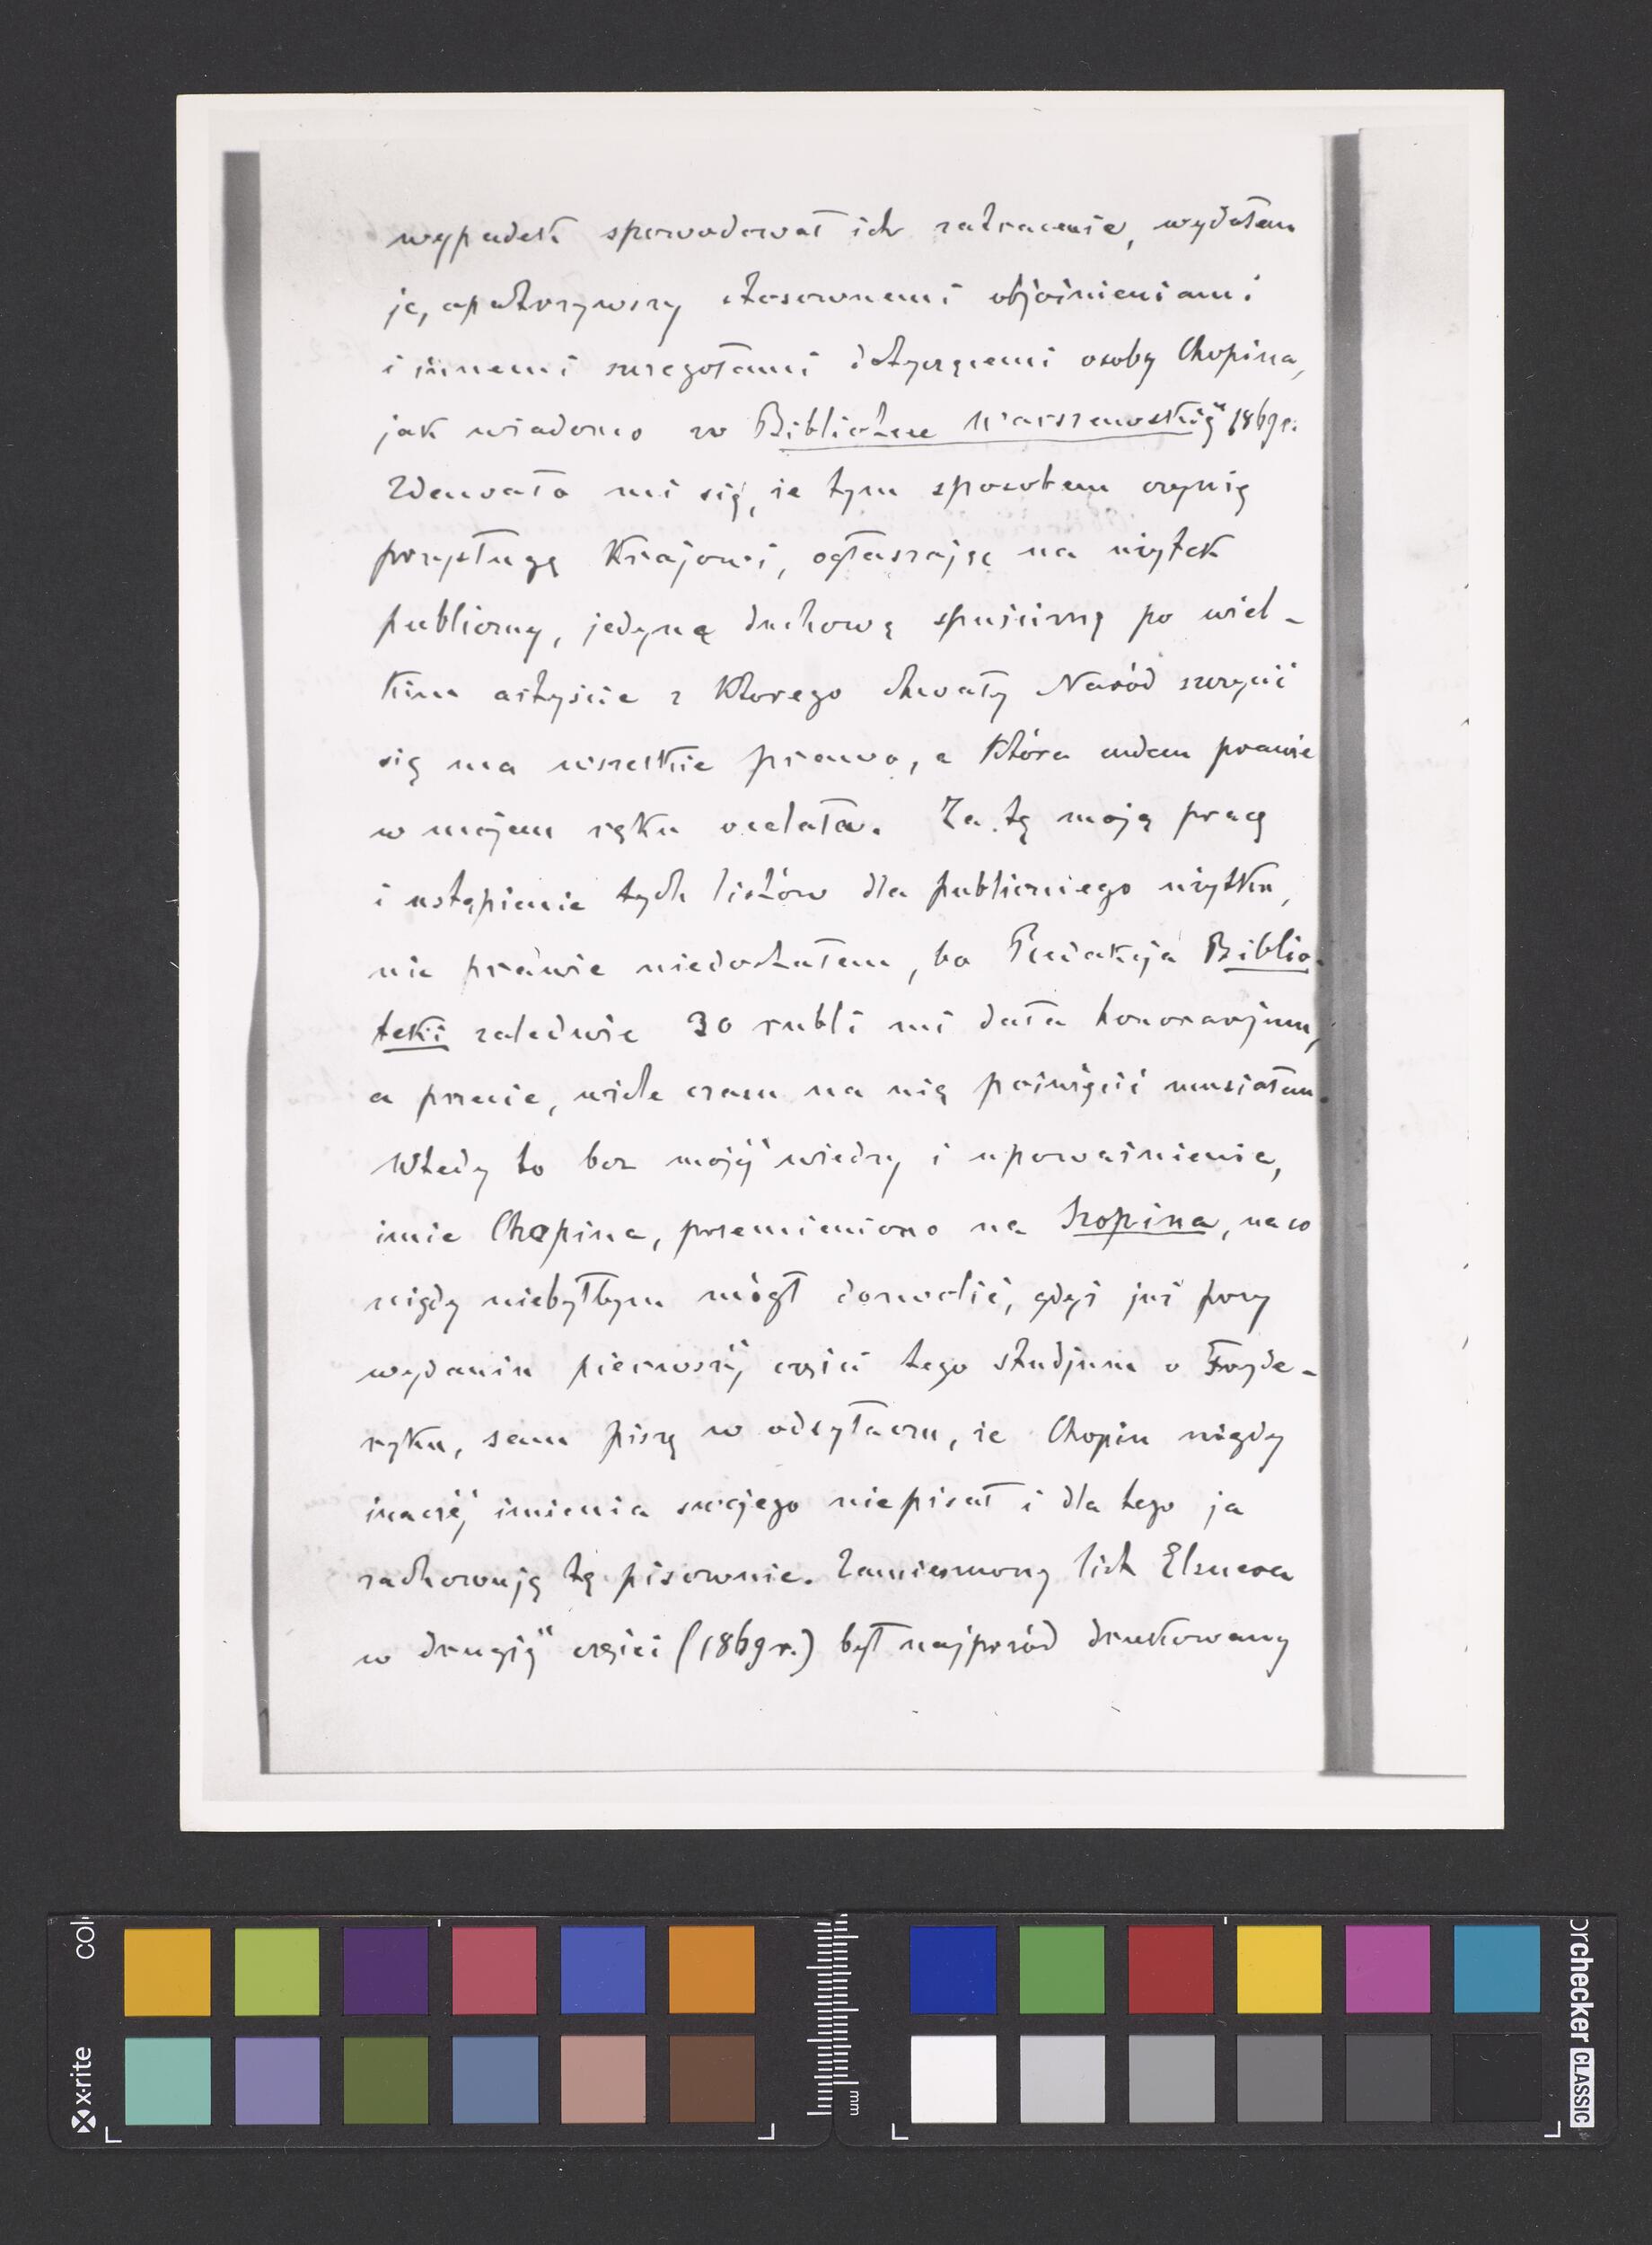 wypadek spowodował ich zatracenie, wydałem
je, opatrzywszy stosownemi objaśnieniami
i innemi szczegółami dotyczącemi osoby Chopina,
jak wiadomo w Bibliotece Warszawskiéj 1869 r.
Zdawało mi się, że tym sposobem czynię
przysługę Krajowi, ogłaszając na użytek
publiczny, jedyną duchową spuściznę po wiel-
kim artyście z którego chwały Naród szczycić
się ma wszelkie prawo, a która cudem prawie
w mojem ręku ocalała. Za tę moją pracę
i ustąpienie tych listów dla publicznego użytku,
nic prawie niedostałem, bo Redakcja Biblio-
teki zaledwie 30 rubli mi dała honorarjum,
a przecie, wiele czasu na nią poświęcić musiałem.
Wtedy to bez mojéj wiedzy i upoważnienia,
imie Chopina, przemieniono na Szopina, na co
nigdy niebyłbym mógł dozwolić, gdyż już przy
wydaniu pierwszéj części tego studjum o Fryde-
ryku, sam piszę w odsyłaczu, że Chopin nigdy
inaczéj imienia swojego niepisał i dla tego ja
zachowuję tę pisownie. Zamieszczony list Elsnera
w drugiéj części (1869 r.) był najprzód drukowany
x-rite
col
mm
orchecker CLASSIC